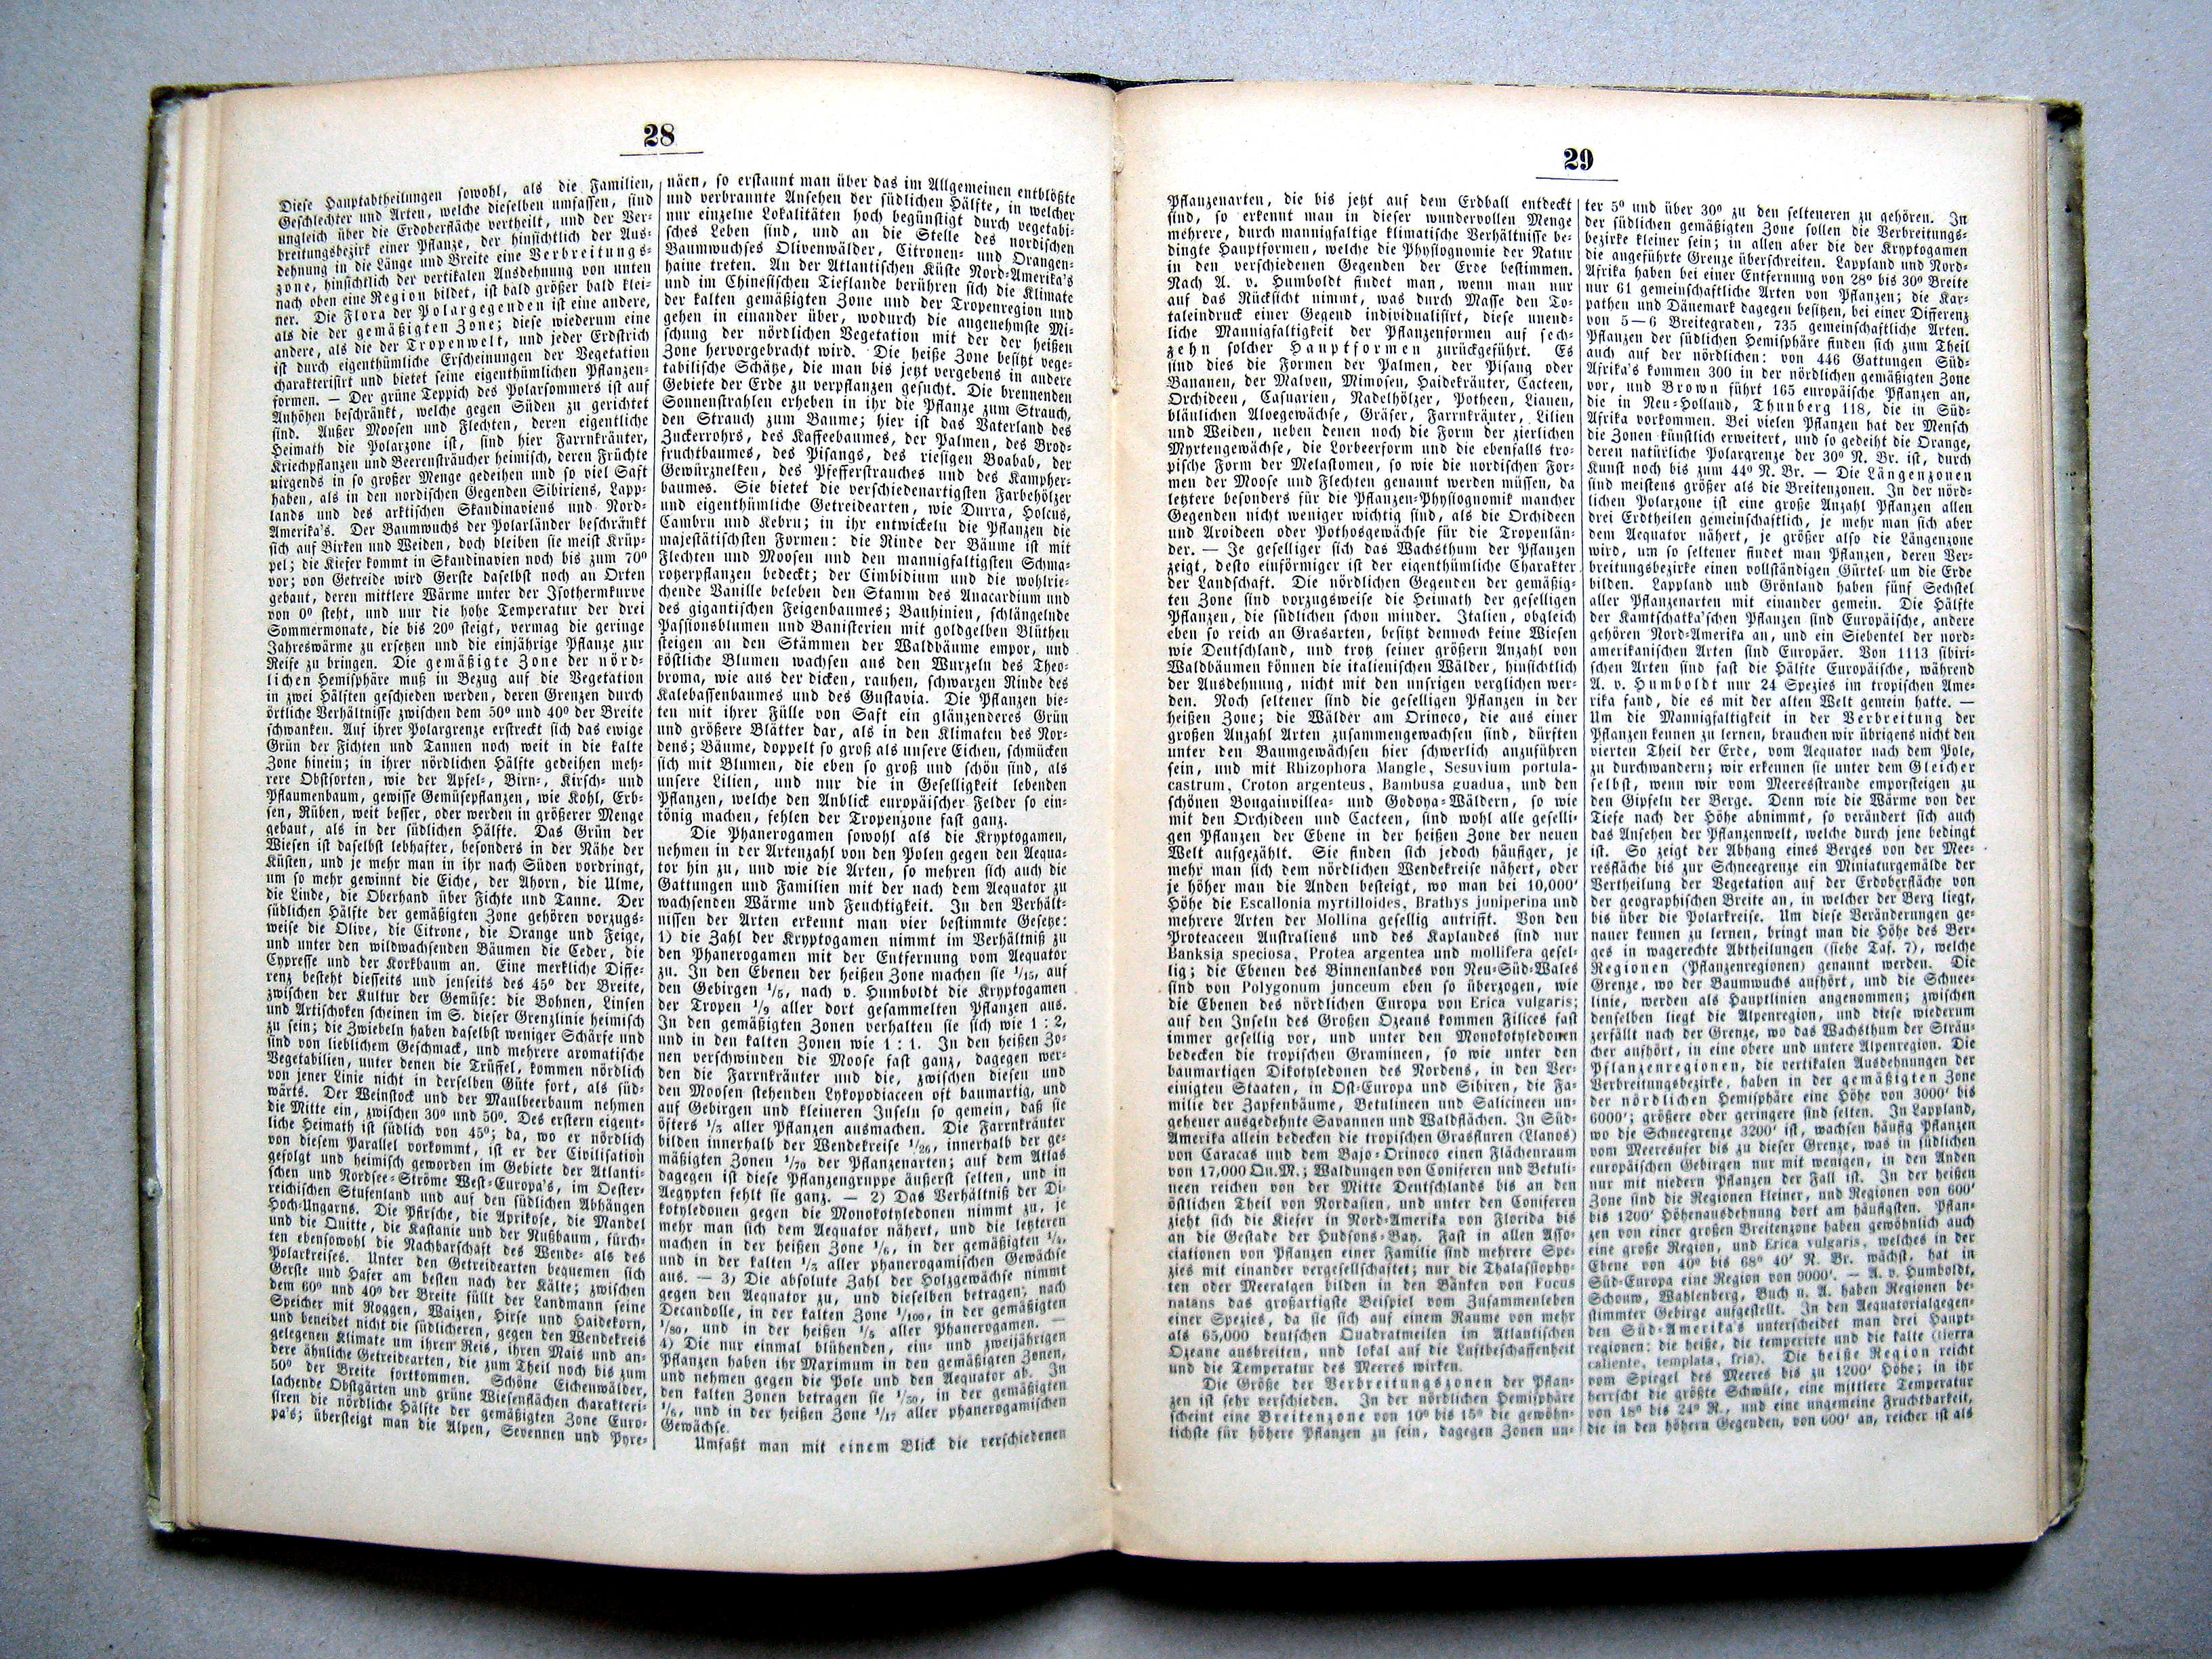 28
Diese Hauptabtheilungen sowohl, als die Familien,
Geschlechter und Arten, welche dieselben umfassen, sind
ungleich über die Erdoberfläche vertheilt, und der Ver-
breitungsbezirk einer Pflanze, der hinsichtlich der Aus-
dehnung in die Länge und Breite eine Verbreitungs-
zone, hinsichtlich der vertikalen Ausdehnung von unten
nach oben eine Region bildet, ist bald größer bald klei-
ner. Die Flora der Polargegenden ist eine andere,
als die der gemäßigten Zone; diese wiederum eine
andere, als die der Tropenwelt, und jeder Erdstrich
ist durch eigenthümliche Erscheinungen der Vegetation
charakterisirt und bietet seine eigenthümlichen Pflanzen-
formen. — Der grüne Teppich des Polarsommers ist auf
Anhöhen beschränkt, welche gegen Süden zu gerichtet
sind. Außer Moosen und Flechten, deren eigentliche
Heimath die Polarzone ist, sind hier Farrnkräuter,
Kriechpflanzen und Beerensträucher heimisch, deren Früchte
nirgends in so großer Menge gedeihen und so viel Saft
haben, als in den nordischen Gegenden Sibiriens, Lapp-
lands und des arktischen Skandinaviens und Nord-
Amerika's. Der Baumwuchs der Polarländer beschränkt
sich auf Birken und Weiden, doch bleiben sie meist Krüp-
pel; die Kiefer kommt in Skandinavien noch bis zum 70º
vor; von Getreide wird Gerste daselbst noch an Orten
gebaut, deren mittlere Wärme unter der Isothermkurve
von 0º steht, und nur die hohe Temperatur der drei
Sommermonate, die bis 20º steigt, vermag die geringe
Jahreswärme zu ersetzen und die einjährige Pflanze zur
Reife zu bringen. Die gemäßigte Zone der nörd-
lichen Hemisphäre muß in Bezug auf die Vegetation
in zwei Hälften geschieden werden, deren Grenzen durch
örtliche Verhältnisse zwischen dem 50º und 40º der Breite
schwanken. Auf ihrer Polargrenze erstreckt sich das ewige
Grün der Fichten und Tannen noch weit in die kalte
Zone hinein; in ihrer nördlichen Hälfte gedeihen meh-
rere Obstsorten, wie der Apfel-, Birn-, Kirsch- und
Pflaumenbaum, gewisse Gemüsepflanzen, wie Kohl, Erb-
sen, Rüben, weit besser, oder werden in größerer Menge
gebaut, als in der südlichen Hälfte. Das Grün der
Wiesen ist daselbst lebhafter, besonders in der Nähe der
Küsten, und je mehr man in ihr nach Süden vordringt,
um so mehr gewinnt die Eiche, der Ahorn, die Ulme,
die Linde, die Oberhand über Fichte und Tanne. Der
südlichen Hälfte der gemäßigten Zone gehören vorzugs-
weise die Olive, die Citrone, die Orange und Feige,
und unter den wildwachsenden Bäumen die Ceder, die
Cypresse und der Korkbaum an. Eine merkliche Diffe-
renz besteht diesseits und jenseits des 45º der Breite,
zwischen der Kultur der Gemüse: die Bohnen, Linsen
und Artischoken scheinen im S. dieser Grenzlinie heimisch
zu sein; die Zwiebeln haben daselbst weniger Schärfe und
sind von lieblichem Geschmack, und mehrere aromatische
Vegetabilien, unter denen die Trüffel, kommen nördlich
von jener Linie nicht in derselben Güte fort, als süd-
wärts. Der Weinstock und der Maulbeerbaum nehmen
die Mitte ein, zwischen 30º und 50º. Des erstern eigent-
liche Heimath ist südlich von 45º; da, wo er nördlich
von diesem Parallel vorkommt, ist er der Civilisation
gefolgt und heimisch geworden im Gebiete der Atlanti-
schen und Nordsee-Ströme West-Europa's, im Oester-
reichischen Stufenland und auf den südlichen Abhängen
Hoch-Ungarns. Die Pfirsche, die Aprikose, die Mandel
und die Quitte, die Kastanie und der Nußbaum, fürch-
ten ebensowohl die Nachbarschaft des Wende- als des
Polarkreises. Unter den Getreidearten bequemen sich
Gerste und Hafer am besten nach der Kälte; zwischen
dem 60º und 40º der Breite füllt der Landmann seine
Speicher mit Roggen, Waizen, Hirse und Haidekorn,
und beneidet nicht die südlicheren, gegen den Wendekreis
gelegenen Klimate um ihren Reis, ihren Mais und an-
dere ähnliche Getreidearten, die zum Theil noch bis zum
50º der Breite fortkommen. Schöne Eichenwälder,
lachende Obstgärten und grüne Wiesenflächen charakteri-
siren die nördliche Hälfte der gemäßigten Zone Euro-
pa's; übersteigt man die Alpen, Sevennen und Pyre-
näen, so erstaunt man über das im Allgemeinen entblößte
und verbrannte Ansehen der südlichen Hälfte, in welcher
nur einzelne Lokalitäten hoch begünstigt durch vegetabi-
sches Leben sind, und an die Stelle des nordischen
Baumwuchses Olivenwälder, Citronen- und Orangen-
haine treten. An der Atlantischen Küste Nord-Amerika's
und im Chinesischen Tieflande berühren sich die Klimate
der kalten gemäßigten Zone und der Tropenregion und
gehen in einander über, wodurch die angenehmste Mi-
schung der nördlichen Vegetation mit der der heißen
Zone hervorgebracht wird. Die heiße Zone besitzt vege-
tabilische Schätze, die man bis jetzt vergebens in andere
Gebiete der Erde zu verpflanzen gesucht. Die brennenden
Sonnenstrahlen erheben in ihr die Pflanze zum Strauch,
den Strauch zum Baume; hier ist das Vaterland des
Zuckerrohrs, des Kaffeebaumes, der Palmen, des Brod-
fruchtbaumes, des Pisangs, des riesigen Boabab, der
Gewürznelken, des Pfefferstrauches und des Kampher-
baumes. Sie bietet die verschiedenartigsten Farbehölzer
und eigenthümliche Getreidearten, wie Durra, Holcus,
Cambru und Kebru; in ihr entwickeln die Pflanzen die
majestätischsten Formen: die Rinde der Bäume ist mit
Flechten und Moosen und den mannigfaltigsten Schma-
rotzerpflanzen bedeckt; der Cimbidium und die wohlrie-
chende Vanille beleben den Stamm des Anacardium und
des gigantischen Feigenbaumes; Bauhinien, schlängelnde
Passionsblumen und Banisterien mit goldgelben Blüthen
steigen an den Stämmen der Waldbäume empor, und
köstliche Blumen wachsen aus den Wurzeln des Theo-
broma, wie aus der dicken, rauhen, schwarzen Rinde des
Kalebassenbaumes und des Gustavia. Die Pflanzen bie-
ten mit ihrer Fülle von Saft ein glänzenderes Grün
und größere Blätter dar, als in den Klimaten des Nor-
dens; Bäume, doppelt so groß als unsere Eichen, schmücken
sich mit Blumen, die eben so groß und schön sind, als
unsere Lilien, und nur die in Geselligkeit lebenden
Pflanzen, welche den Anblick europäischer Felder so ein-
tönig machen, fehlen der Tropenzone fast ganz.
Die Phanerogamen sowohl als die Kryptogamen,
nehmen in der Artenzahl von den Polen gegen den Aequa-
tor hin zu, und wie die Arten, so mehren sich auch die
Gattungen und Familien mit der nach dem Aequator zu
wachsenden Wärme und Feuchtigkeit. In den Verhält-
nissen der Arten erkennt man vier bestimmte Gesetze:
1) die Zahl der Kryptogamen nimmt im Verhältniß zu
den Phanerogamen mit der Entfernung vom Aequator
zu. In den Ebenen der heißen Zone machen sie 1/15, auf
den Gebirgen 1/5, nach v. Humboldt die Kryptogamen
der Tropen 1/9 aller dort gesammelten Pflanzen aus.
In den gemäßigten Zonen verhalten sie sich wie 1 : 2,
und in den kalten Zonen wie 1 : 1. In den heißen Zo-
nen verschwinden die Moose fast ganz, dagegen wer-
den die Farrnkräuter und die, zwischen diesen und
den Moosen stehenden Lykopodiaceen oft baumartig, und
auf Gebirgen und kleineren Inseln so gemein, daß sie
öfters 1/3 aller Pflanzen ausmachen. Die Farrnkräuter
bilden innerhalb der Wendekreise 1/26, innerhalb der ge-
mäßigten Zonen 1/70 der Pflanzenarten; auf dem Atlas
dagegen ist diese Pflanzengruppe äußerst selten, und in
Aegypten fehlt sie ganz. — 2) Das Verhältniß der Di-
kotyledonen gegen die Monokotyledonen nimmt zu, je
mehr man sich dem Aequator nähert, und die letzteren
machen in der heißen Zone 1/6, in der gemäßigten 1/4,
und in der kalten 1/3 aller phanerogamischen Gewächse
aus. — 3) Die absolute Zahl der Holzgewächse nimmt
gegen den Aequator zu, und dieselben betragen, nach
Decandolle, in der kalten Zone 1/100, in der gemäßigten
1/80, und in der heißen 1/5 aller Phanerogamen. —
4) Die nur einmal blühenden, ein- und zweijährigen
Pflanzen haben ihr Maximum in den gemäßigten Zonen,
und nehmen gegen die Pole und den Aequator ab. In
den kalten Zonen betragen sie 1/30, in der gemäßigten
1/6, und in der heißen Zone 1/17 aller phanerogamischen
Gewächse.
Umfaßt man mit einem Blick die verschiedenen
29
Pflanzenarten, die bis jetzt auf dem Erdball entdeckt
sind, so erkennt man in dieser wundervollen Menge
mehrere, durch mannigfaltige klimatische Verhältnisse be-
dingte Hauptformen, welche die Physiognomie der Natur
in den verschiedenen Gegenden der Erde bestimmen.
Nach A. v. Humboldt findet man, wenn man nur
auf das Rücksicht nimmt, was durch Masse den To-
taleindruck einer Gegend individualisirt, diese unend-
liche Mannigfaltigkeit der Pflanzenformen auf sech-
zehn solcher Hauptformen zurückgeführt. Es
sind dies die Formen der Palmen, der Pisang oder
Bananen, der Malven, Mimosen, Haidekräuter, Cacteen,
Orchideen, Casuarien, Nadelhölzer, Potheen, Lianen,
bläulichen Aloegewächse, Gräser, Farrnkräuter, Lilien
und Weiden, neben denen noch die Form der zierlichen
Myrtengewächse, die Lorbeerform und die ebenfalls tro-
pische Form der Melastomen, so wie die nordischen For-
men der Moose und Flechten genannt werden müssen, da
letztere besonders für die Pflanzen-Physiognomik mancher
Gegenden nicht weniger wichtig sind, als die Orchideen
und Aroideen oder Pothosgewächse für die Tropenlän-
der. — Je geselliger sich das Wachsthum der Pflanzen
zeigt, desto einförmiger ist der eigenthümliche Charakter
der Landschaft. Die nördlichen Gegenden der gemäßig-
ten Zone sind vorzugsweise die Heimath der geselligen
Pflanzen, die südlichen schon minder. Italien, obgleich
eben so reich an Grasarten, besitzt dennoch keine Wiesen
wie Deutschland, und trotz seiner größern Anzahl von
Waldbäumen können die italienischen Wälder, hinsichtlich
der Ausdehnung, nicht mit den unsrigen verglichen wer-
den. Noch seltener sind die geselligen Pflanzen in der
heißen Zone; die Wälder am Orinoco, die aus einer
großen Anzahl Arten zusammengewachsen sind, dürften
unter den Baumgewächsen hier schwerlich anzuführen
sein, und mit Rhizophora Mangle, Sesuvium portula-
castrum, Croton argenteus, Bambusa guadua, und den
schönen Bougainvillea- und Godoya-Wäldern, so wie
mit den Orchideen und Cacteen, sind wohl alle geselli-
gen Pflanzen der Ebene in der heißen Zone der neuen
Welt aufgezählt. Sie finden sich jedoch häufiger, je
mehr man sich dem nördlichen Wendekreise nähert, oder
je höher man die Anden besteigt, wo man bei 10,000'
Höhe die Escallonia myrtilloides, Brathys juniperina und
mehrere Arten der Mollina gesellig antrifft. Von den
Proteaceen Australiens und des Kaplandes sind nur
Banksia speciosa, Protea argentea und mollifera gesel-
lig; die Ebenen des Binnenlandes von Neu-Süd-Wales
sind von Polygonum junceum eben so überzogen, wie
die Ebenen des nördlichen Europa von Erica vulgaris;
auf den Inseln des Großen Ozeans kommen Filices fast
immer gesellig vor, und unter den Monokotyledonen
bedecken die tropischen Gramineen, so wie unter den
baumartigen Dikotyledonen des Nordens, in den Ver-
einigten Staaten, in Ost-Europa und Sibiren, die Fa-
milie der Zapfenbäume, Betulineen und Salicineen un-
geheuer ausgedehnte Savannen und Waldflächen. In Süd-
Amerika allein bedecken die tropischen Grasfluren (Llanos)
von Caracas und dem Bajo-Orinoco einen Flächenraum
von 17,000 Qu.M.; Waldungen von Coniferen und Betuli-
neen reichen von der Mitte Deutschlands bis an den
östlichen Theil von Nordasien, und unter den Coniferen
zieht sich die Kiefer in Nord-Amerika von Florida bis
an die Gestade der Hudsons-Bay. Fast in allen Asso-
ciationen von Pflanzen einer Familie sind mehrere Spe-
zies mit einander vergesellschaftet; nur die Thalassiophy-
ten oder Meeralgen bilden in den Bänken von Fucus
natans das großartigste Beispiel vom Zusammenleben
einer Spezies, da sie sich auf einem Raume von mehr
als 65,000 deutschen Quadratmeilen im Atlantischen
Ozeane ausbreiten, und lokal auf die Luftbeschaffenheit
und die Temperatur des Meeres wirken.
Die Größe der Verbreitungszonen der Pflan-
zen ist sehr verschieden. In der nördlichen Hemisphäre
scheint eine Breitenzone von 10º bis 15º die gewöhn-
lichste für höhere Pflanzen zu sein, dagegen Zonen un-
ter 5º und über 30º zu den selteneren zu gehören. In
der südlichen gemäßigten Zone sollen die Verbreitungs-
bezirke kleiner sein; in allen aber die der Kryptogamen
die angeführte Grenze überschreiten. Lappland und Nord-
Afrika haben bei einer Entfernung von 28º bis 30º Breite
nur 61 gemeinschaftliche Arten von Pflanzen; die Kar-
pathen und Dänemark dagegen besitzen, bei einer Differenz
von 5—6 Breitegraden, 735 gemeinschaftliche Arten.
Pflanzen der südlichen Hemisphäre finden sich zum Theil
auch auf der nördlichen: von 446 Gattungen Süd-
Afrika's kommen 300 in der nördlichen gemäßigten Zone
vor, und Brown führt 165 europäische Pflanzen an,
die in Neu-Holland, Thunberg 118, die in Süd-
Afrika vorkommen. Bei vielen Pflanzen hat der Mensch
die Zonen künstlich erweitert, und so gedeiht die Orange,
deren natürliche Polargrenze der 30º N. Br. ist, durch
Kunst noch bis zum 44º N. Br. — Die Längenzonen
sind meistens größer als die Breitenzonen. In der nörd-
lichen Polarzone ist eine große Anzahl Pflanzen allen
drei Erdtheilen gemeinschaftlich, je mehr man sich aber
dem Aequator nähert, je größer also die Längenzone
wird, um so seltener findet man Pflanzen, deren Ver-
breitungsbezirke einen vollständigen Gürtel um die Erde
bilden. Lappland und Grönland haben fünf Sechstel
aller Pflanzenarten mit einander gemein. Die Hälfte
der Kamtschatka'schen Pflanzen sind Europäische, andere
gehören Nord-Amerika an, und ein Siebentel der nord-
amerikanischen Arten sind Europäer. Von 1113 sibiri-
schen Arten sind fast die Hälfte Europäische, während
A. v. Humboldt nur 24 Spezies im tropischen Ame-
rika fand, die es mit der alten Welt gemein hatte. —
Um die Mannigfaltigkeit in der Verbreitung der
Pflanzen kennen zu lernen, brauchen wir übrigens nicht den
vierten Theil der Erde, vom Aequator nach dem Pole,
zu durchwandern; wir erkennen sie unter dem Gleicher
selbst, wenn wir vom Meeresstrande emporsteigen zu
den Gipfeln der Berge. Denn wie die Wärme von der
Tiefe nach der Höhe abnimmt, so verändert sich auch
das Ansehen der Pflanzenwelt, welche durch jene bedingt
ist. So zeigt der Abhang eines Berges von der Mee-
resfläche bis zur Schneegrenze ein Miniaturgemälde der
Vertheilung der Vegetation auf der Erdoberfläche von
der geographischen Breite an, in welcher der Berg liegt,
bis über die Polarkreise. Um diese Veränderungen ge-
nauer kennen zu lernen, bringt man die Höhe des Ber-
ges in wagerechte Abtheilungen (siehe Taf. 7), welche
Regionen (Pflanzenregionen) genannt werden. Die
Grenze, wo der Baumwuchs aufhört, und die Schnee-
linie, werden als Hauptlinien angenommen; zwischen
denselben liegt die Alpenregion, und diese wiederum
zerfällt nach der Grenze, wo das Wachsthum der Sträu-
cher aufhört, in eine obere und untere Alpenregion. Die
Pflanzenregionen, die vertikalen Ausdehnungen der
Verbreitungsbezirke, haben in der gemäßigten Zone
der nördlichen Hemisphäre eine Höhe von 3000' bis
6000'; größere oder geringere sind selten. In Lappland,
wo die Schneegrenze 3200' ist, wachsen häufig Pflanzen
vom Meeresufer bis zu dieser Grenze, was in südlichen
europäischen Gebirgen nur mit wenigen, in den Anden
nur mit niedern Pflanzen der Fall ist. In der heißen
Zone sind die Regionen kleiner, und Regionen von 600'
bis 1200' Höhenausdehnung dort am häufigsten. Pflan-
zen von einer großen Breitenzone haben gewöhnlich auch
eine große Region, und Erica vulgaris, welches in der
Ebene von 40º bis 68º 40' N. Br. wächst, hat in
Süd-Europa eine Region von 9000'. — A. v. Humboldt,
Schouw, Wahlenberg, Buch u. A. haben Regionen be-
stimmter Gebirge aufgestellt. In den Aequatorialgegen-
den Süd-Amerika's unterscheidet man drei Haupt-
regionen: die heiße, die temperirte und die kalte (tierra
caliente, templata, fria). Die heiße Region reicht
vom Spiegel des Meeres bis zu 1200' Höhe; in ihr
herrscht die größte Schwüle, eine mittlere Temperatur
von 18º bis 24º R., und eine ungemeine Fruchtbarkeit,
die in den höhern Gegenden, von 600' an, reicher ist als